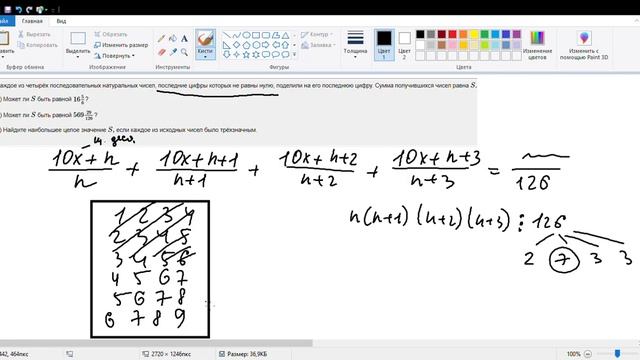 Файл
Главная
Вид
Вырезать
Копировать
Обрезать
Изменить размер
Повернуть
Кисти
Контур
Заливка
Толщина
Цвет 1
Цвет 2
Изменение цветов
Изменить с помощью Paint 3D
каждое из четырёх последовательных натуральных чисел, последние цифры которых не равны нулю, поделили на его последнюю цифру. Сумма получившихся чисел равна S.
) Может ли S быть равной 16 5/6 ?
) Может ли S быть равной 569 29/126 ?
) Найдите наибольшее целое значение S, если каждое из исходных чисел было трёхзначным.
(10x+n)/n + (10x+n+1)/(n+1) + (10x+n+2)/(n+2) + (10x+n+3)/(n+3) = /126
n(n+1)(n+2)(n+3) ⋮ 126
2 7 3 3
1 2 3 4
2 3 4 5
3 4 5 6
4 5 6 7
5 6 7 8
6 7 8 9
442, 464пкс
2720 × 1246пкс
Размер: 36,9КБ
100%